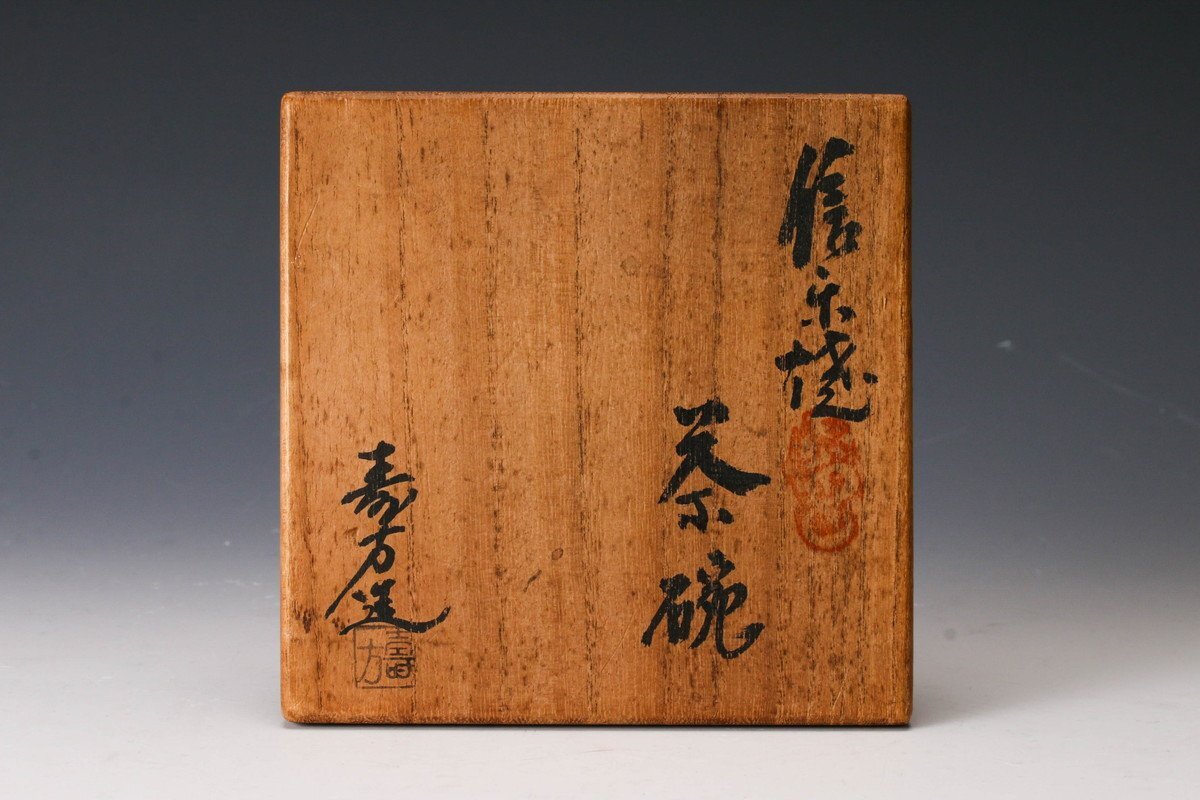 信楽焼
茶碗
寿方造
寿方